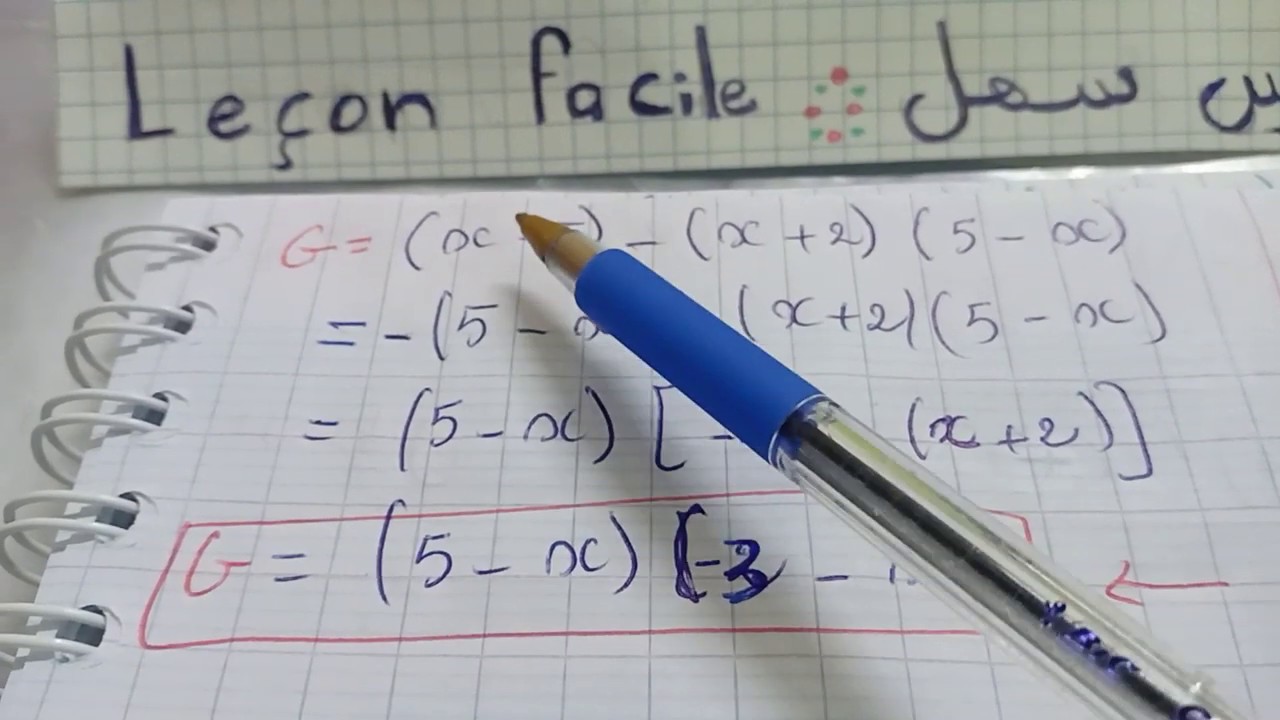 Leçon facile : سهل
G = (x - ) - (x + 2) (5 - x)
= - (5 - (x+2)(5 - x)
= (5 - x) [ - (x + 2)]
G = (5 - x) (-3 -